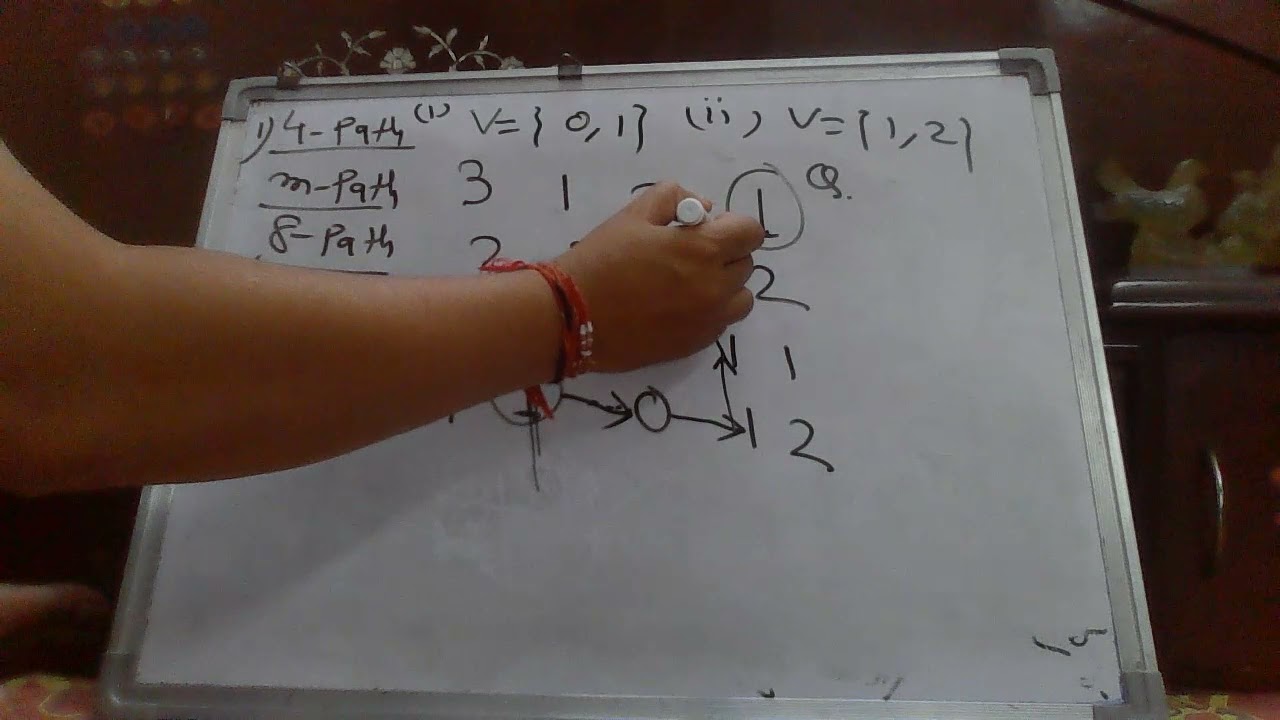 1) 4-Path (i) V={ 0,1} (ii) V={1,2}
m-Path 3 1 1 Q.
8-Path 2 2
1
0 1 2